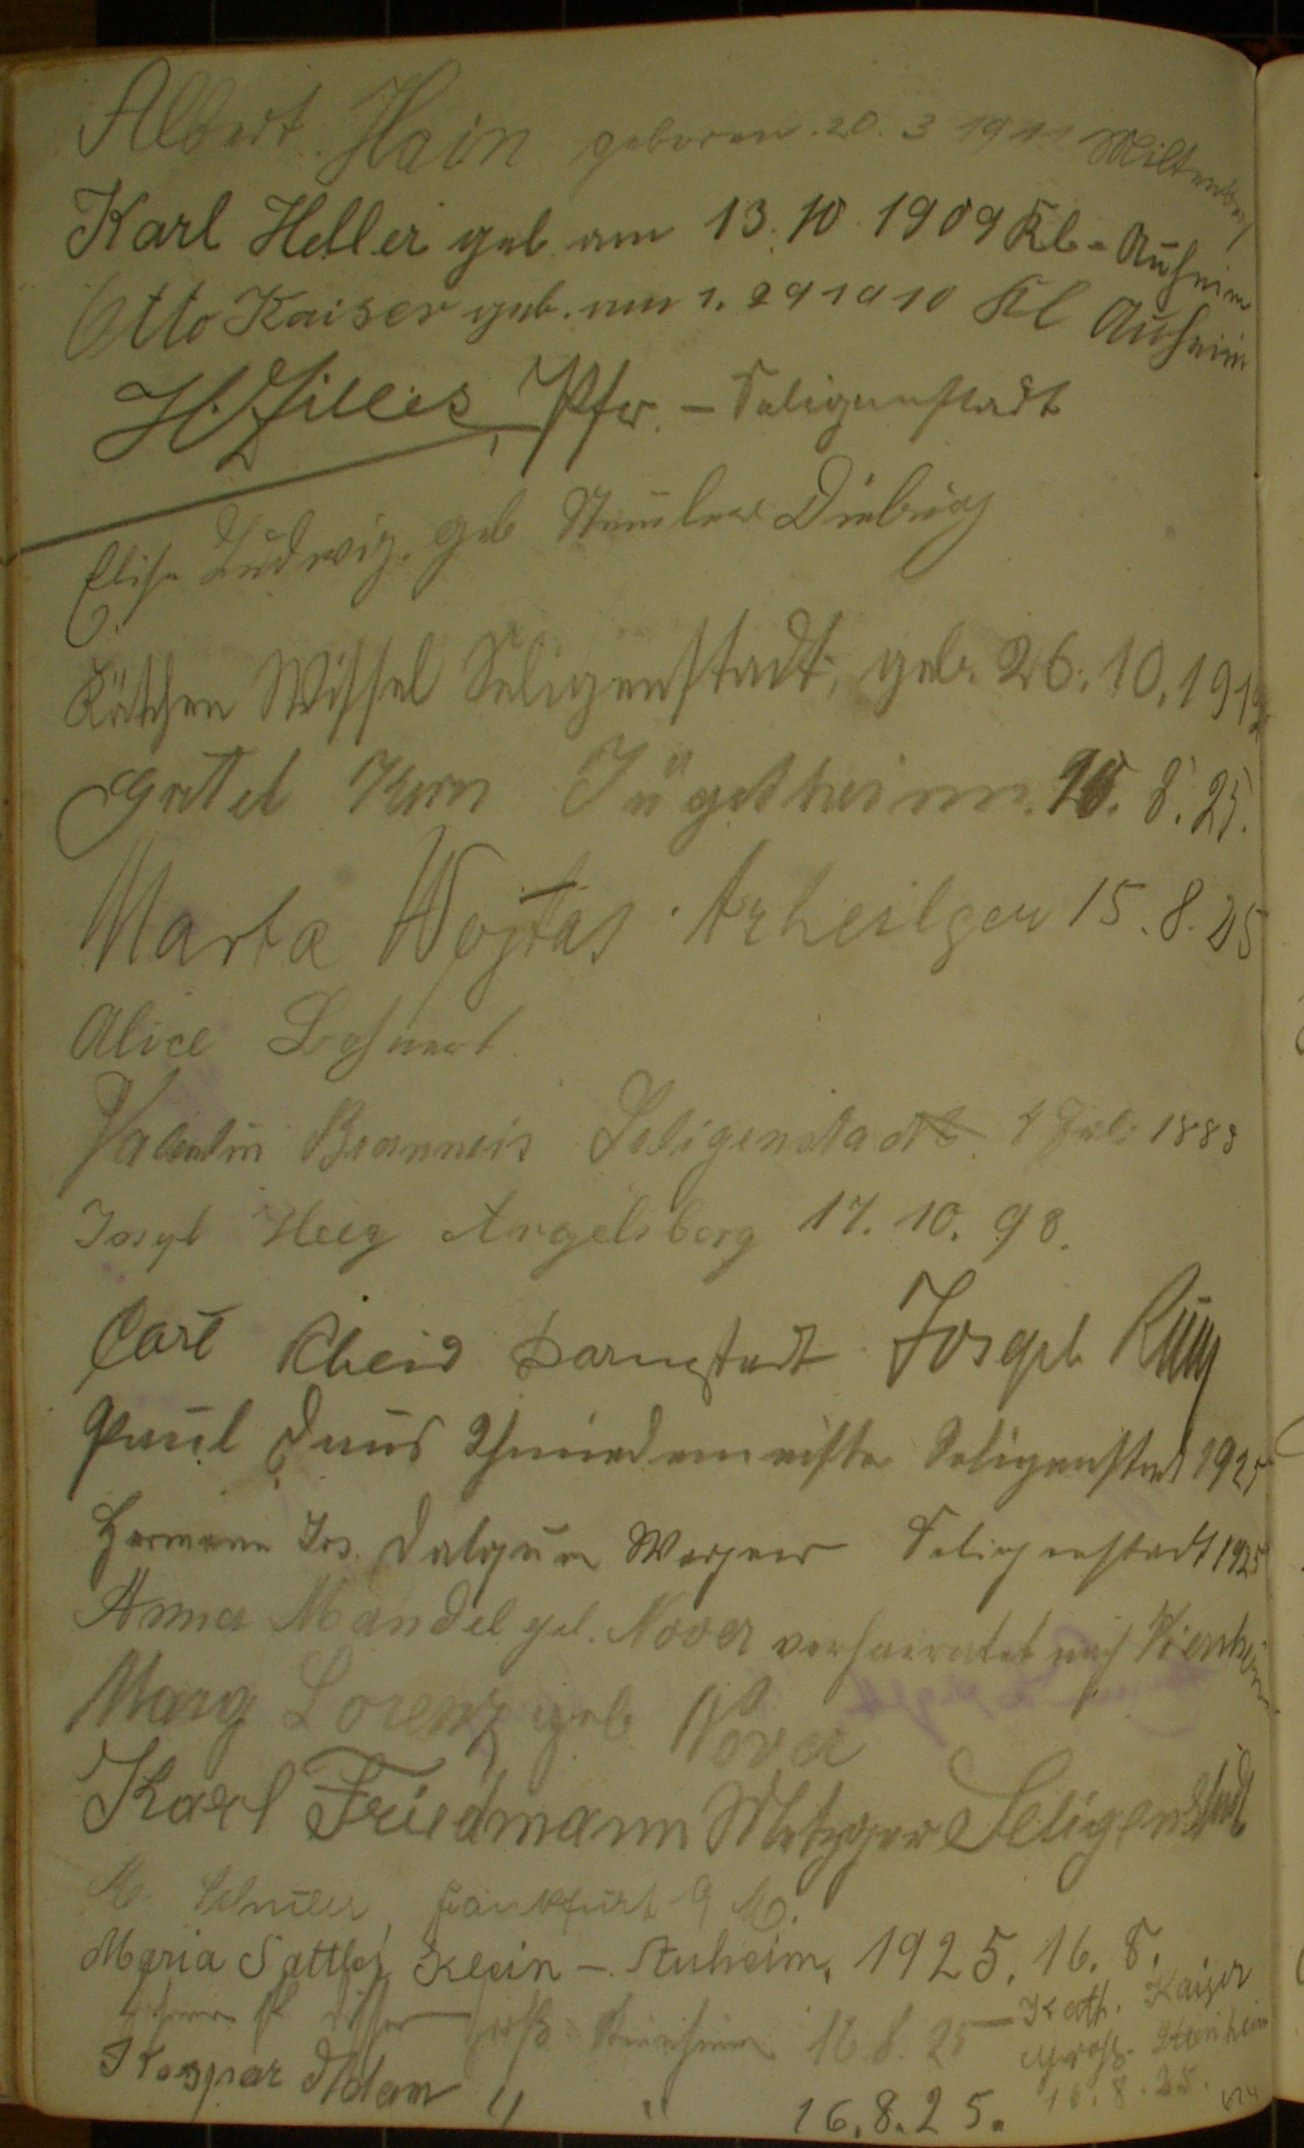 Albert Hain geboren 20. 3 19 Miltenberg
Karl Heller geb. am 13. 10. 1909 Kl.-Auheim
Otto Kaiser geb. am 1. 9 1910 Kl Auheim
Pfr. – Seligenstadt
Elise Ludwig, geb Dieburg
Käthchen Wissel Seligenstadt, geb. 26. 10. 191
Gretel Kern Jügesheim. 8. 25.
Marta Wojtas Arheilgen 15. 8. 25
Alice
Valentin Seligenstadt 1888
Josef Heeg Angelsberg 17. 10. 98.
Carl Rheid Darmstadt Joseph
Paul Daus Schmiedemeister Seligenstadt 1925
Hermann Jos. Wagner Seligenstadt 1925
Anna Mandel geb. Nover verheiratet nach Viernheim
Marg Lorenz geb Nover
Karl Friedmann Metzger Seligenstadt
M. Frankfurt a M.
Maria Sattler Klein-Auheim, 1925. 16. 8.
Groß-Steinheim 16. 8. 25 Kath. Kaiser
Gross-Steinheim
16. 8. 25.
Kaspar Adam " " 16. 8. 25.